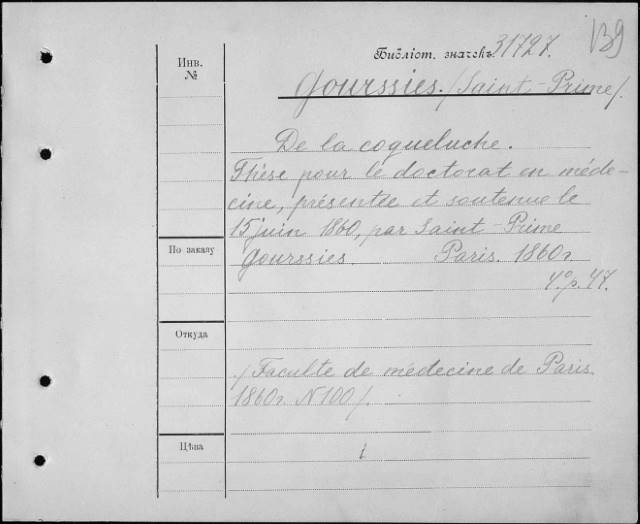 139
Библіот. значекъ 31727.
Инв.
№
Gourssies. /Saint-Prime/.
De la coqueluche.
Thèse pour le doctorat en méde-
cine, présentée et soutenue le
15 juin 1860, par Saint-Prime
По заказу
Gourssies. Paris. 1860г.
4º. p. 47.
Откуда
/Faculté de médecine de Paris.
1860г. N 100/.
Цѣна
1